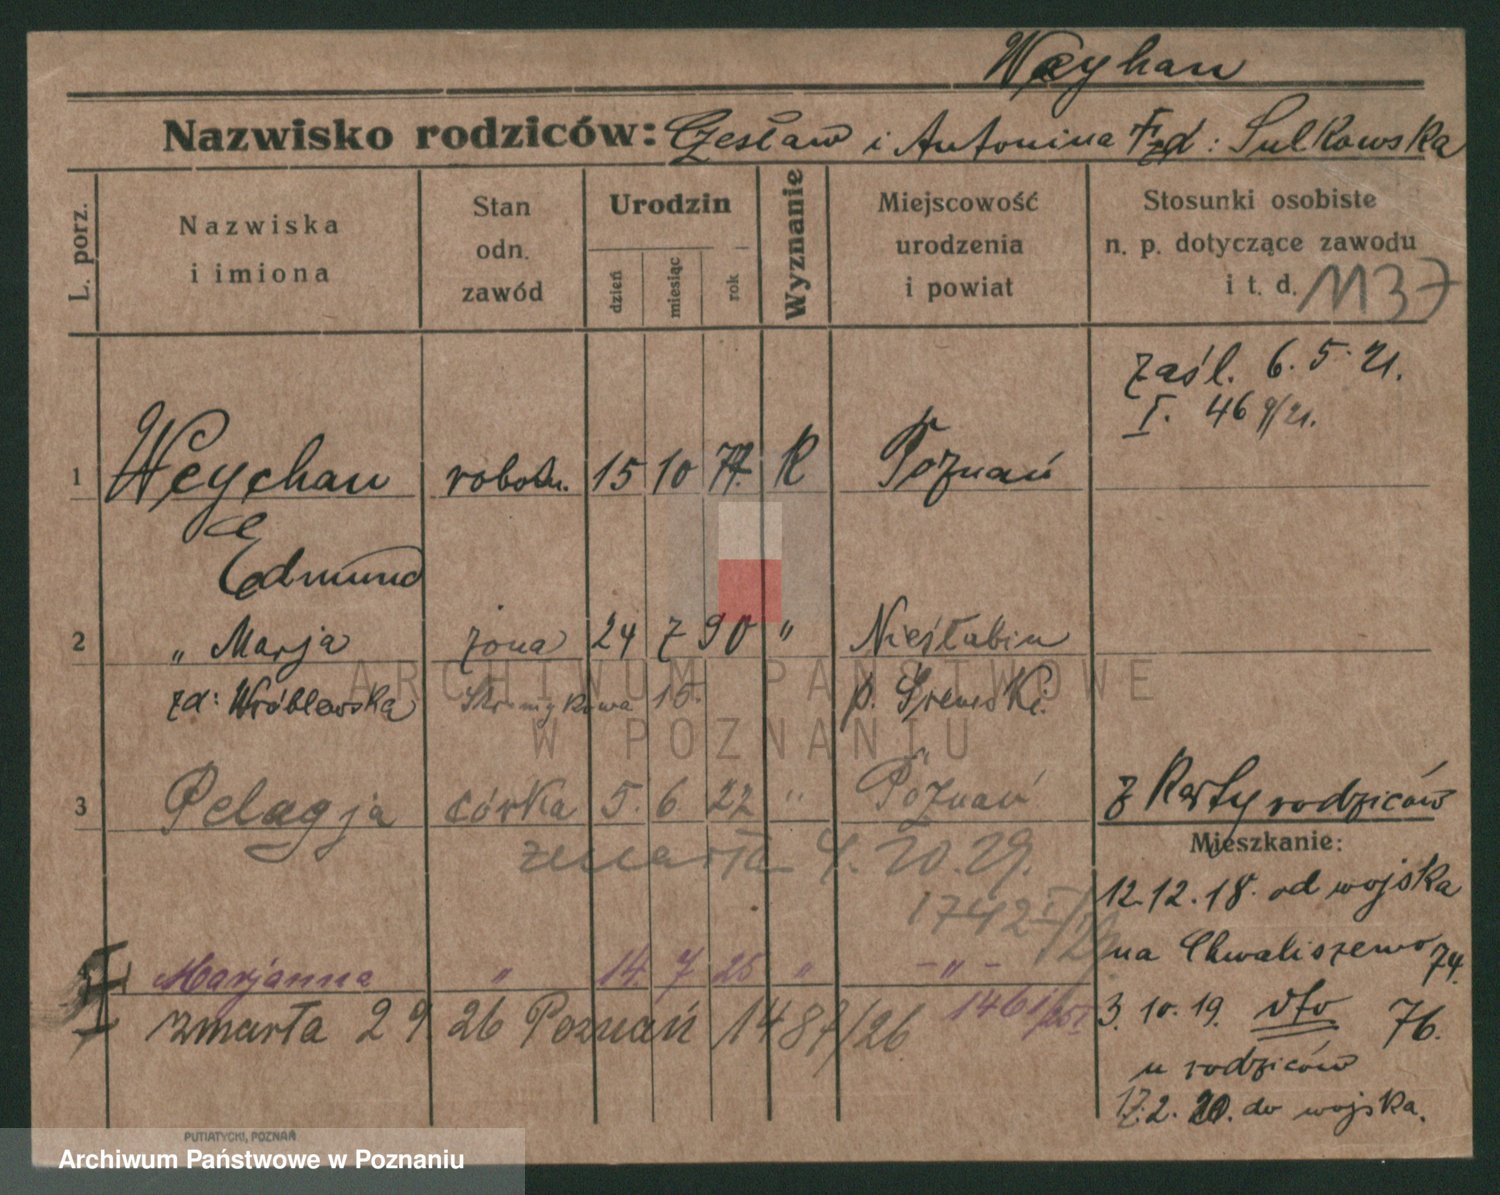 Weyhan
Nazwisko rodziców: Czesław i Antonina zd: Sulkowska
L. porz.
Nazwiska
i imiona
Stan
odn.
zawód
Urodzin
dzień
miesiąc
rok
Wyznanie
Miejscowość
urodzenia
i powiat
Stosunki osobiste
n. p. dotyczące zawodu
i t. d.
1137
zaśl. 6. 5. 21.
I. 469/21.
1 Weychan robotn. 15 10 R Poznań
Edmund
2 " Marja żona 24 7 90 " Niesłabin
zd: Wróblewska 15. p. Śremski
3 Pelagja córka 5. 6. 22 " Poznań
z Karty rodziców
zmarła 4. 10. 29.
1742 I/29
Mieszkanie:
12.12.18. od wojska
na Chwaliszewo 74.
Marjanna " 14. 7 25 " - " -
1461/25
zmarła 29. 26 Poznań 1487/26
3. 10. 19. dto 76.
u rodziców
17. 2. 20. do wojska.
ARCHIWUM PAŃSTWOWE
W POZNANIU
PUTIATYCKI, POZNAŃ
Archiwum Państwowe w Poznaniu